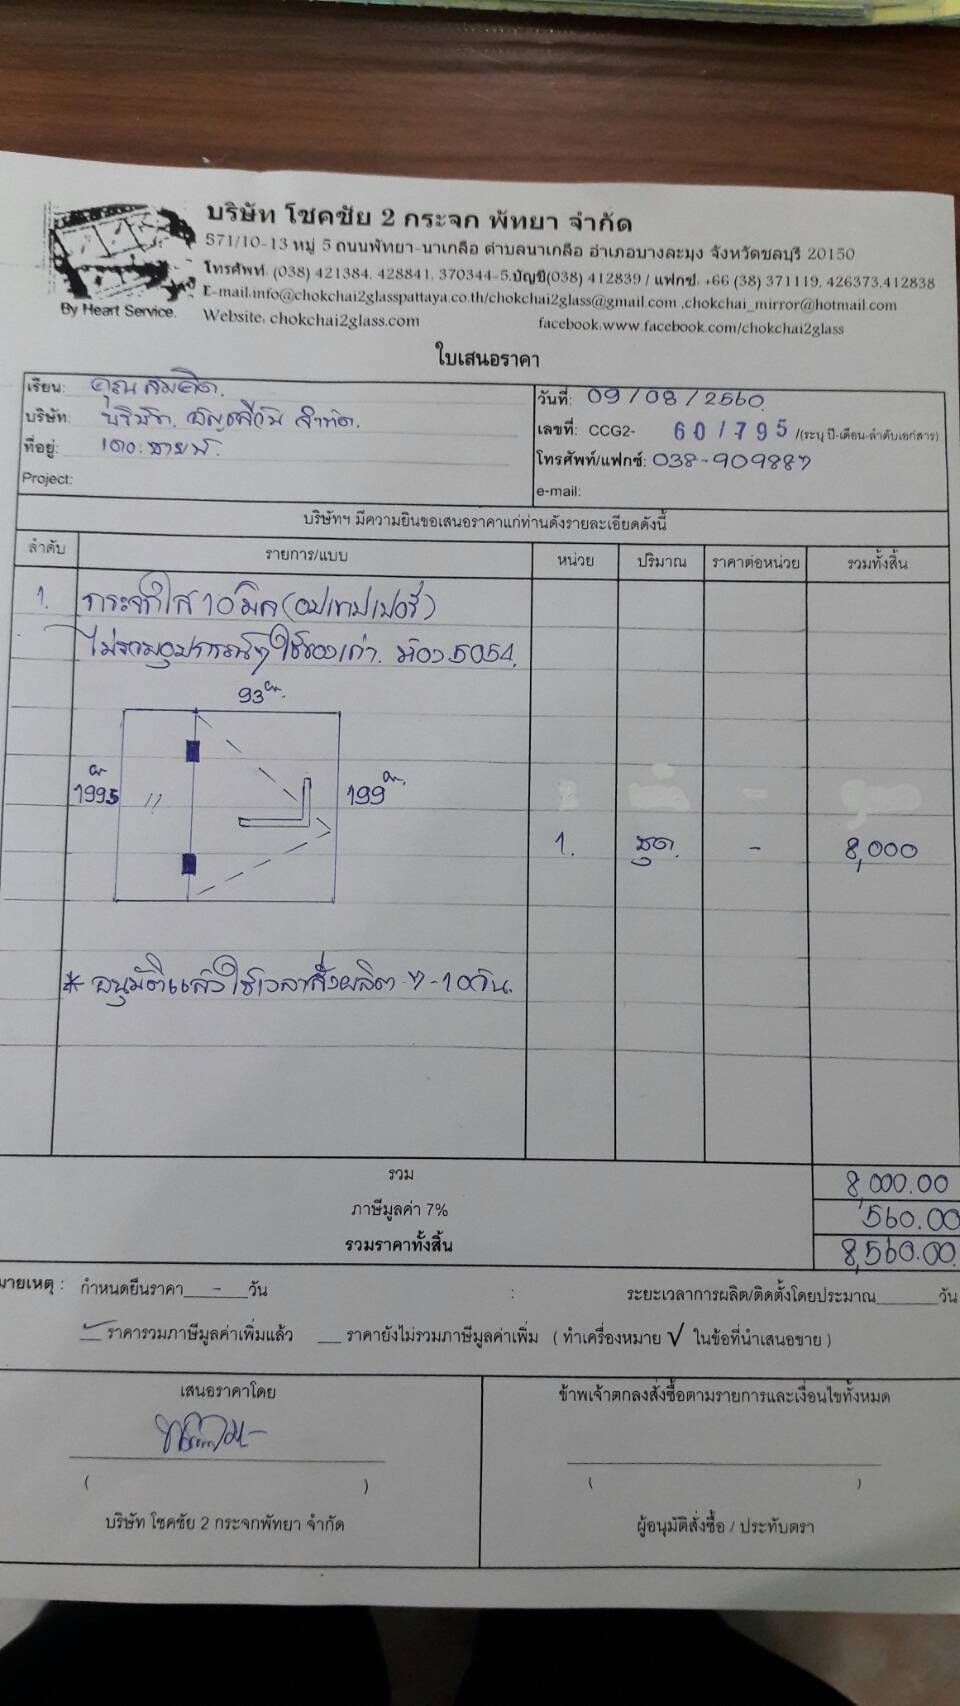 บริษัท โชคชัย 2 กระจก พัทยา จำกัด
571/10-13 หมู่ 5 ถนนพัทยา-นาเกลือ ตำบลนาเกลือ อำเภอบางละมุง จังหวัดชลบุรี 20150
โทรศัพท์. (038) 421384, 428841, 370344-5.บัญชี(038) 412839 / แฟกซ์. +66 (38) 371119, 426373,412838
By Heart Service.
E-mail.info@chokchai2glasspattaya.co.th/chokchai2glass@gmail.com ,chokchai_mirror@hotmail.com
Website. chokchai2glass.com facebook.www.facebook.com/chokchai2glass
ใบเสนอราคา
เรียน: คุณ สมคิด. วันที่: 09/08/2560.
บริษัท: บริษัท. จำกัด. เลขที่: CCG2- 60/795 /(ระบุ ปี-เดือน-ลำดับเอกสาร)
ที่อยู่: โทรศัพท์/แฟกซ์: 038-909887
Project: e-mail:
บริษัทฯ มีความยินขอเสนอราคาแก่ท่านดังรายละเอียดดังนี้
ลำดับ รายการ/แบบ หน่วย ปริมาณ ราคาต่อหน่วย รวมทั้งสิ้น
1. กระจกใส 10 มิล (อบเทมเปอร์)
ไม่รวมอุปกรณ์ๆ ใช้ของเก่า. ห้อง 5054.
93 ซม.
1995 ซม. // 199 ซม.
1. ชุด. - 8,000
* อนุมัติแล้วใช้เวลาสั่งผลิต 7-10 วัน.
รวม 8,000.00
ภาษีมูลค่า 7% 560.00
รวมราคาทั้งสิ้น 8,560.00
มายเหตุ : กำหนดยืนราคา___-___วัน : ระยะเวลาการผลิต/ติดตั้งโดยประมาณ______วัน
✓ ราคารวมภาษีมูลค่าเพิ่มแล้ว __ ราคายังไม่รวมภาษีมูลค่าเพิ่ม ( ทำเครื่องหมาย √ ในข้อที่นำเสนอขาย )
เสนอราคาโดย ข้าพเจ้าตกลงสั่งซื้อตามรายการและเงื่อนไขทั้งหมด
( ) ( )
บริษัท โชคชัย 2 กระจกพัทยา จำกัด ผู้อนุมัติสั่งซื้อ / ประทับตรา